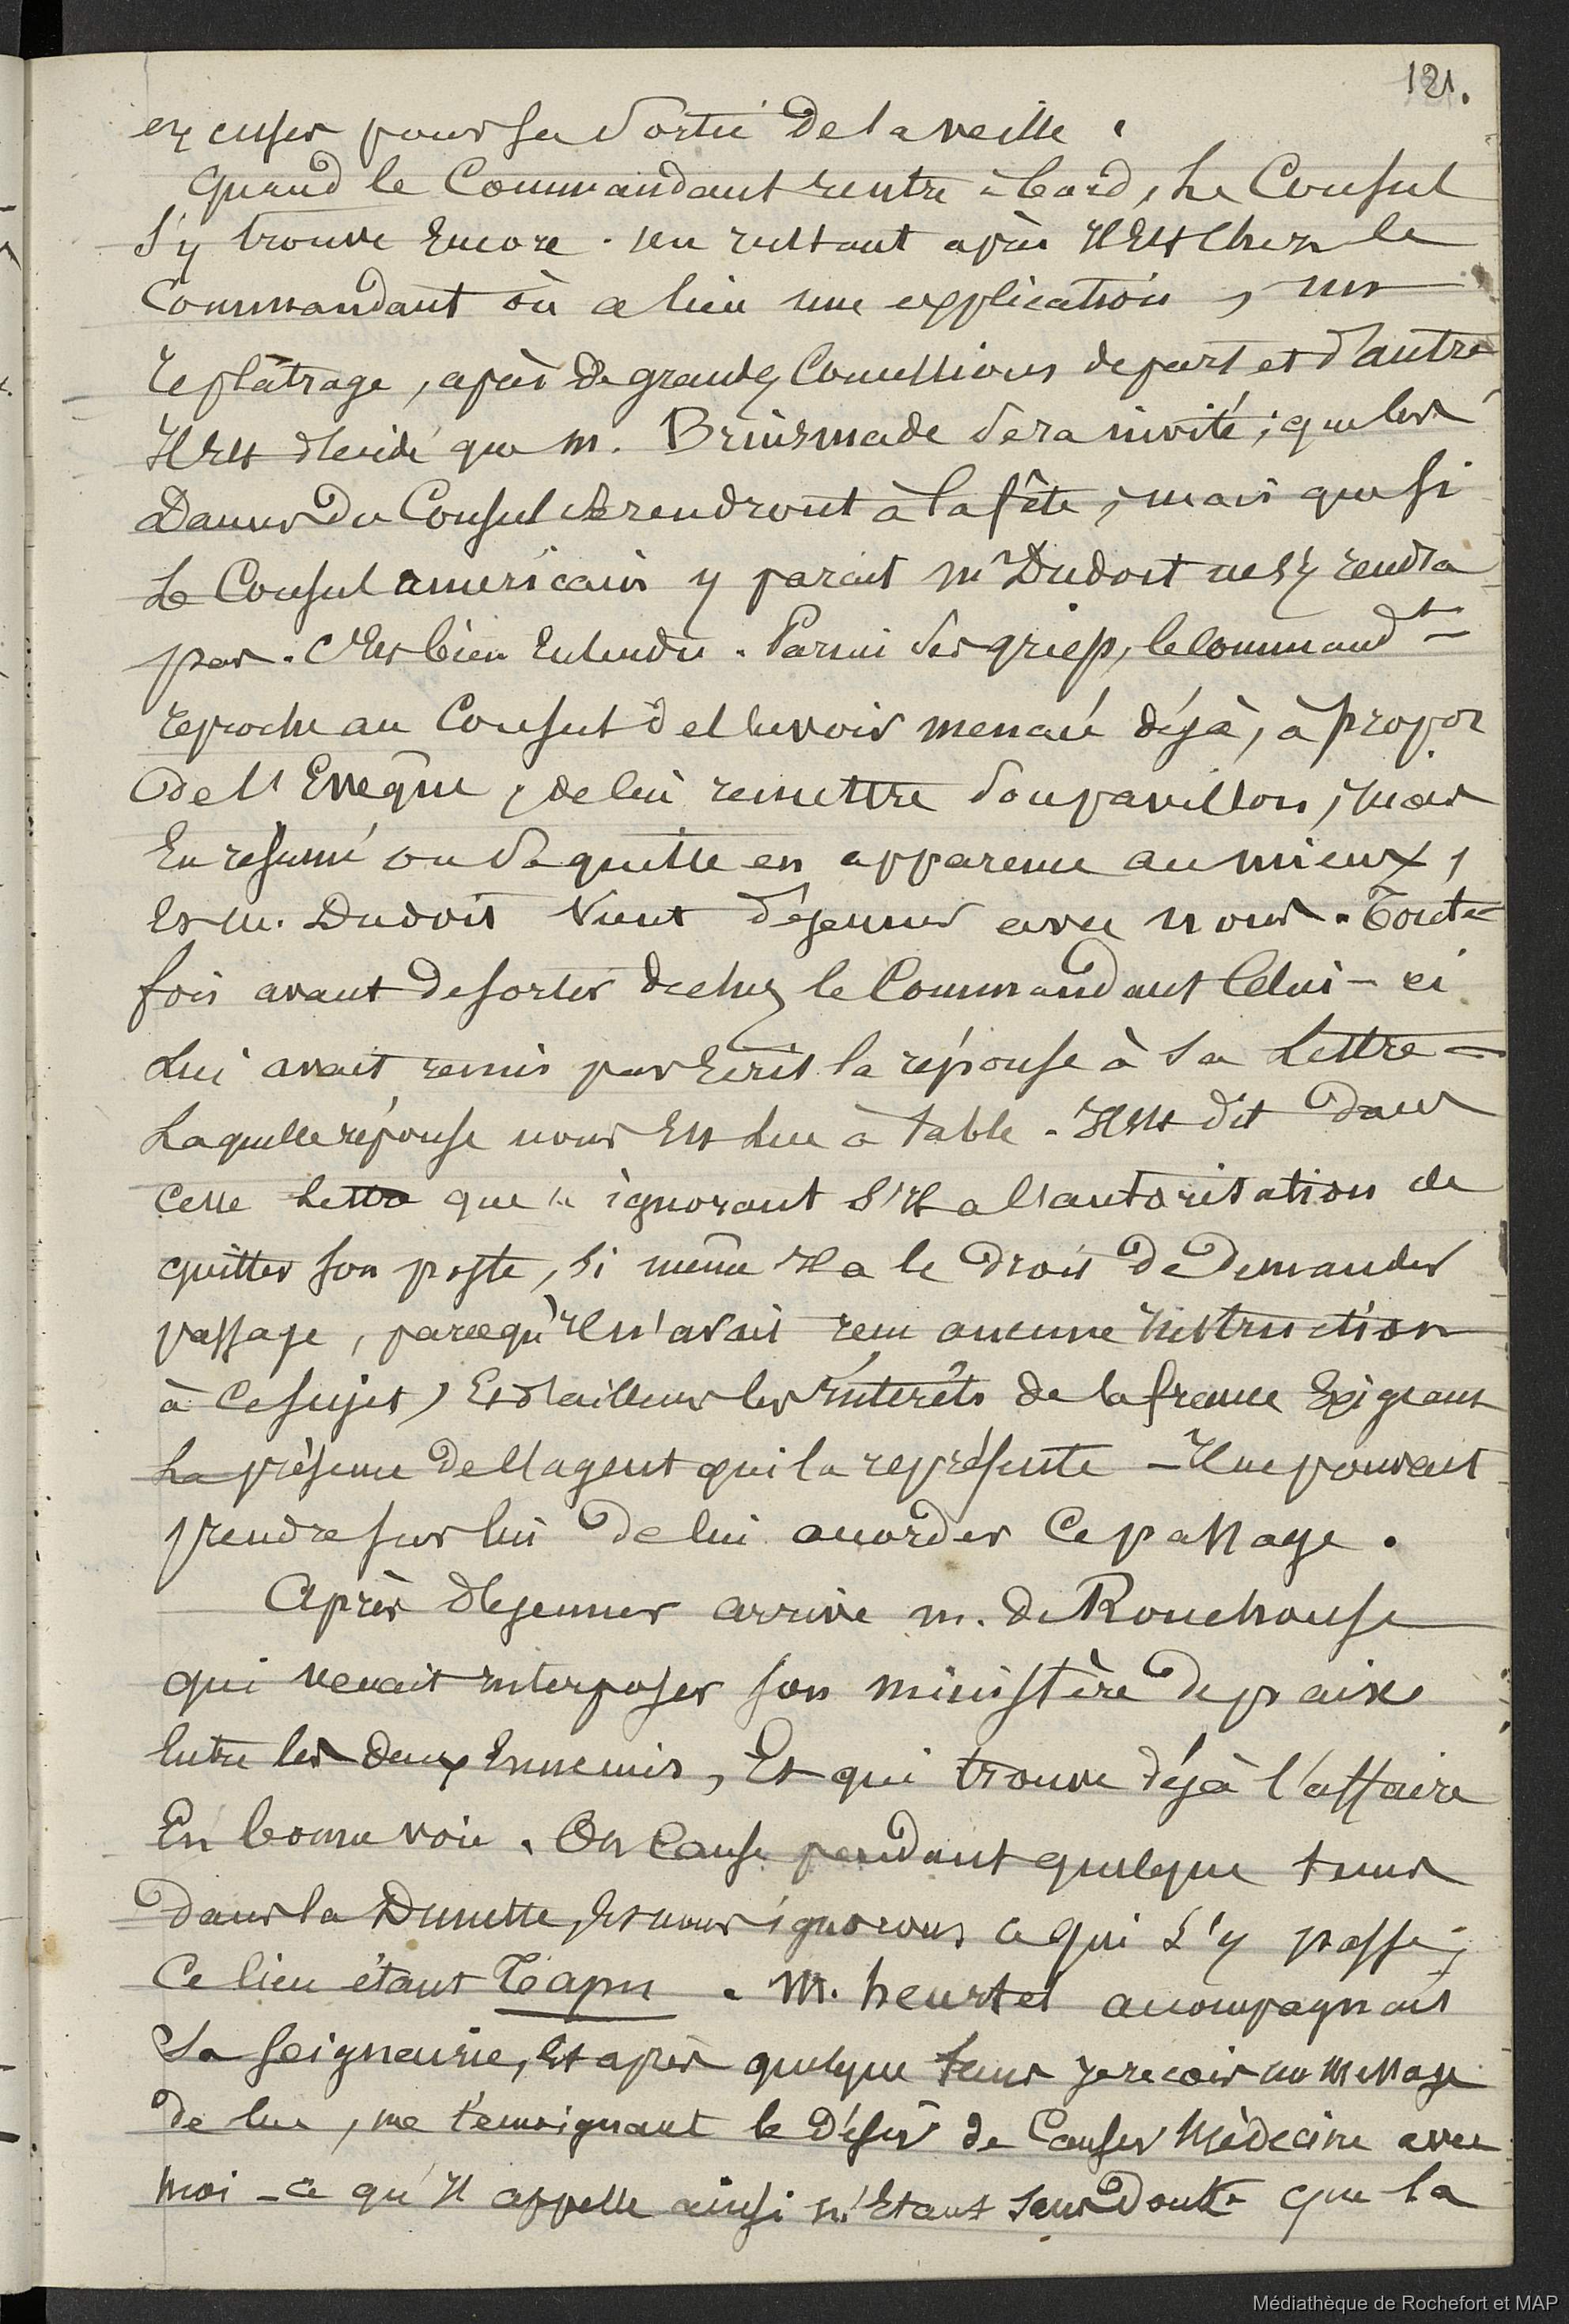 121.
excuser pour sa sortie de la veille.
Quand le Commandant rentre à bord, Le Consul
s'y trouve Encore. un instant après Il Est Chez le
Commandant où a lieu une explication, un
replâtrage, après de grandes Concessions de part et d'autre
Il Est décidé que M. Brinsmade sera invité; que les
Dames du Consul se rendront à la fête, mais que si
Le Consul américain y parait Mr Dudoit ne s'y rendra
pas. C'Est bien Entendu. Parmi ses griefs, le Commandt
reproche au Consul de l'avoir menacé déjà, à propos
de l'Evêque, de lui remettre son pavillon, Mais
En résumé on se quitte en apparence au mieux,
Et M. Dudoit Vient déjeuner avec nous. Toute-
fois avant de sortir de chez le Commandant Celui-ci
Lui avait remis par Ecrit la réponse à sa Lettre -
Laquelle réponse nous Est Lue à table. Il Est dit dans
cette Lettre que "ignorant s'Il a l'autorisation de
quitter son poste, si même Il a le droit de Demander
passage, parcequ'Il n'avait recu aucune Instruction
à Ce sujet, Et d'ailleurs les Intérêts de la france Exigeant
La présence de l'agent qui la représente - Il ne pouvait
prendre sur lui de lui accorder Ce passage.
Après déjeuner arrive M. de Rouchouse
qui venait interposer son ministère de paix
Entre les deux Ennemis, Et qui trouve déjà l'affaire
En bonne voie. On Cause pendant quelque tems
dans la Dunette, Et nous ignorons ce qui s'y passe;
Ce lieu étant Tapu. M. heurtel accompagnait
Sa Seigneurie, Et après quelque tems je recois un Message
de lui, me témoignant le Désir de Causer Médecine avec
moi - ce qu'Il appelle ainsi n'Etant sans Doute que la
Médiathèque de Rochefort et MAP